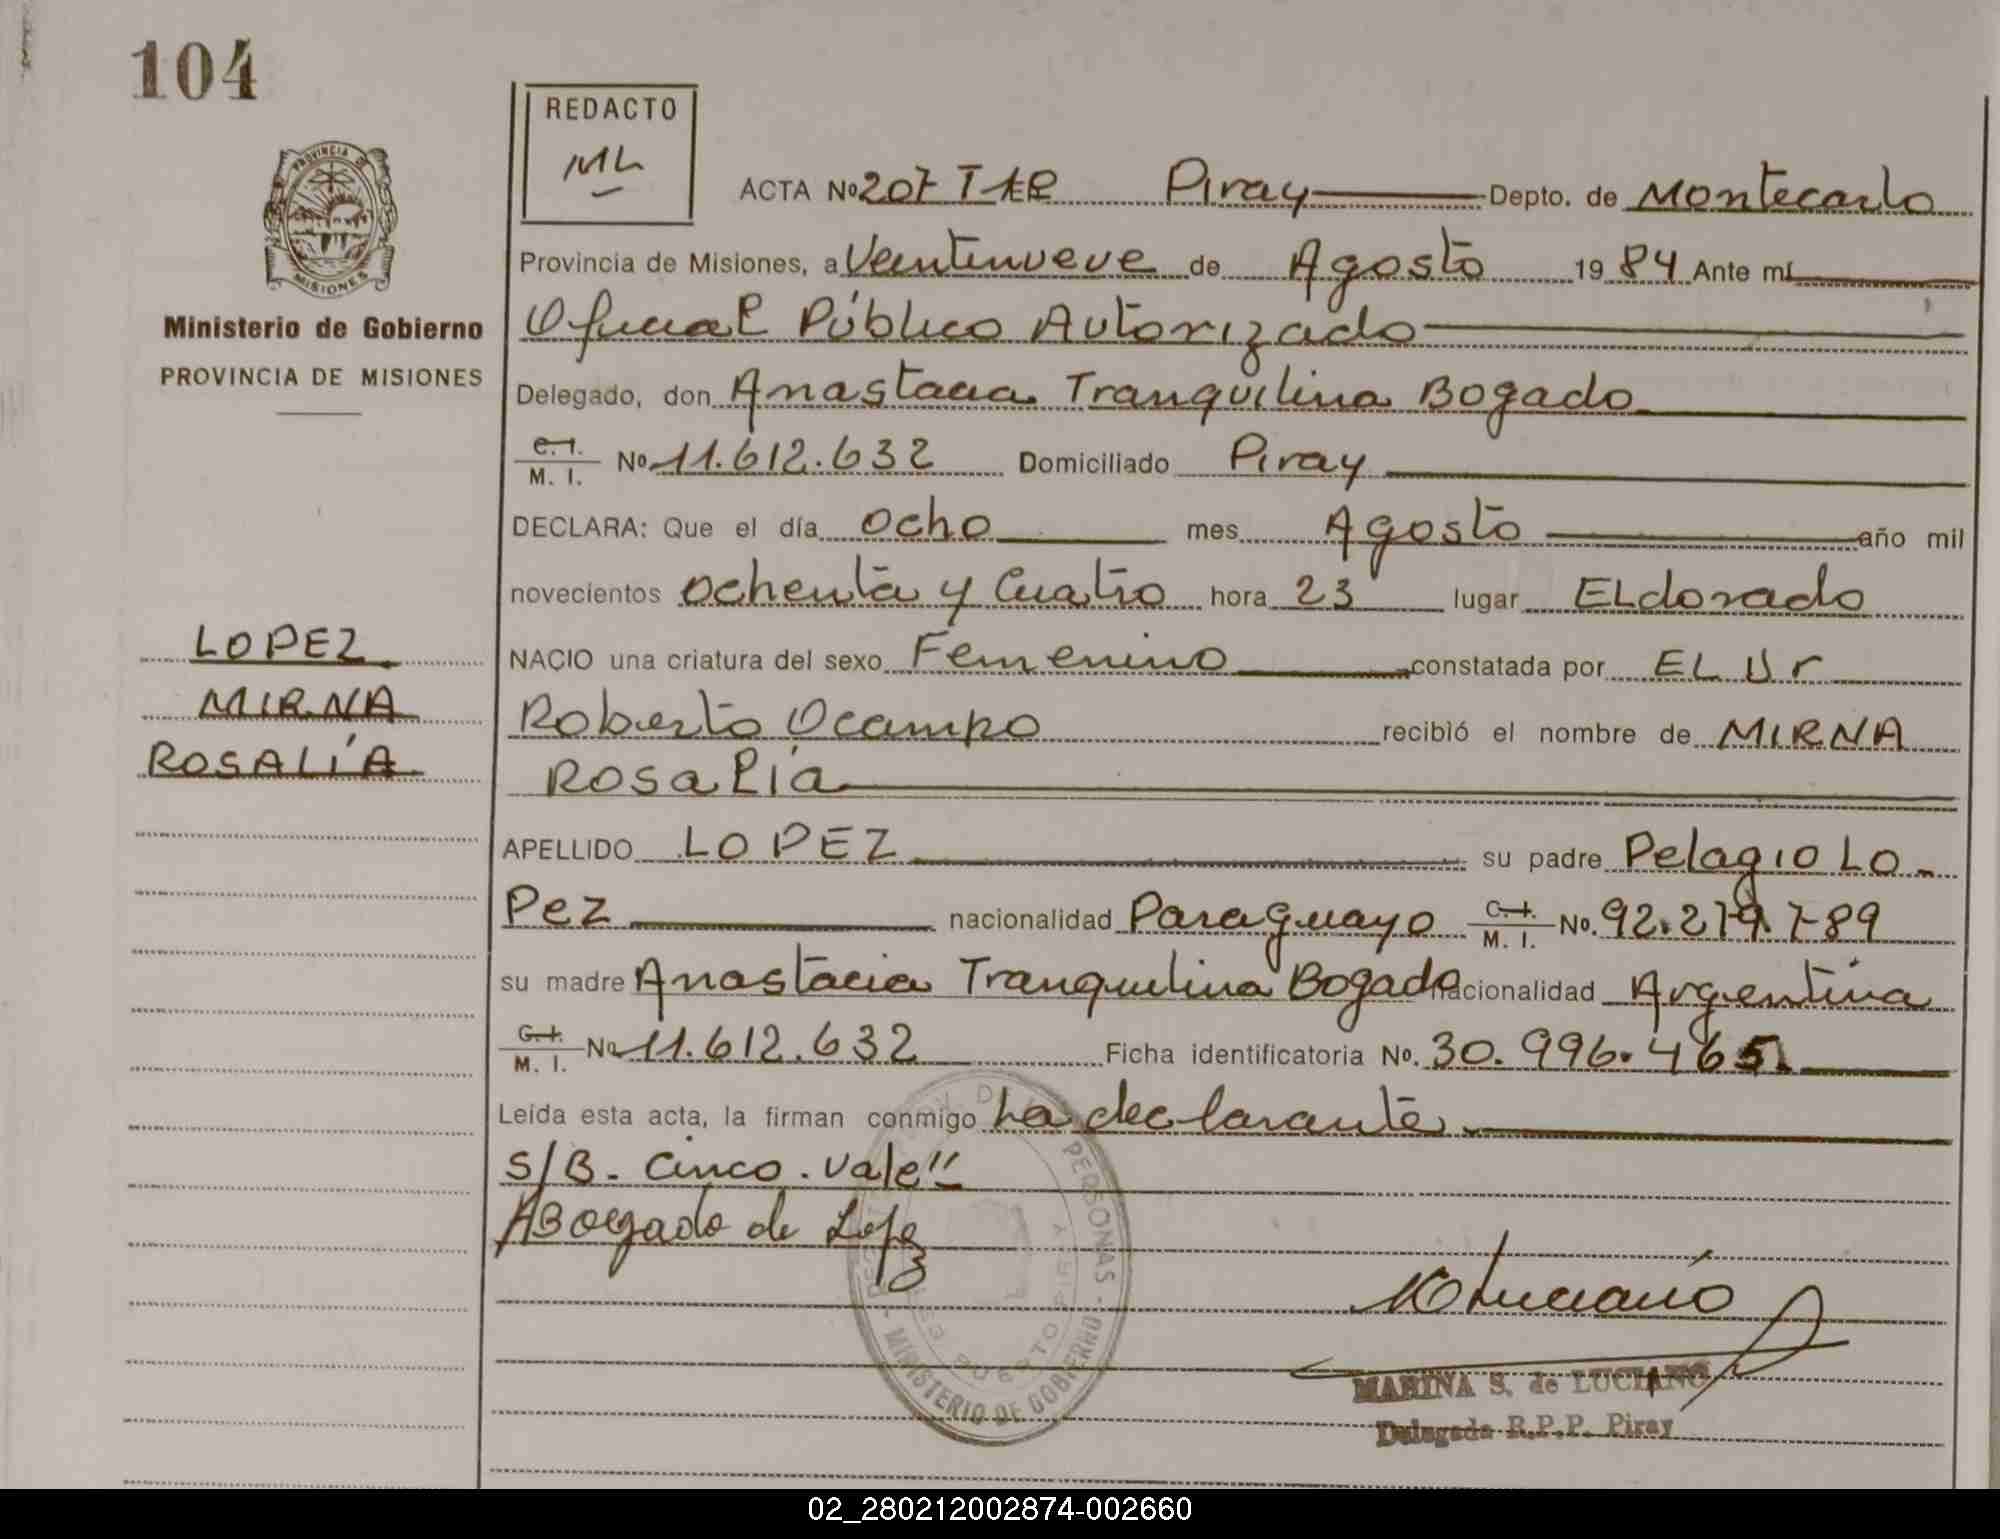 104
PROVINCIA DE
MISIONES
Ministerio de Gobierno
PROVINCIA DE MISIONES
LOPEZ
MIRNA
ROSALÍA
REDACTO
ML
ACTA Nº 207 T 1ER Piray Depto. de Montecarlo
Provincia de Misiones, a Veintinueve de Agosto 1984 Ante mí
Oficial Público Autorizado
Delegado, don Anastacia Tranquilina Bogado
C.I. M. I. Nº 11.612.632 Domiciliado Piray
DECLARA: Que el día ocho mes Agosto año mil
novecientos ochenta y Cuatro hora 23 lugar ELdorado
NACIO una criatura del sexo Femenino constatada por EL Dr
Roberto Ocampo recibió el nombre de MIRNA
Rosalía
APELLIDO LOPEZ su padre Pelagio Lo-
Pez nacionalidad Paraguayo C.I. M. I. Nº. 92.279.789
su madre Anastacia Tranquilina Bogado nacionalidad Argentina
C.I. M. I. Nº 11.612.632 Ficha identificatoria Nº. 30.996.465
Leída esta acta, la firman conmigo La declarante
S/B. cinco. vale"
ABogado de Lopez
PERSONAS - MINISTERIO DE GOBIERNO -
PUERTO PIRAY
MARINA S. de LUCIANO
Delegada R.P.P. Piray
02_280212002874-002660